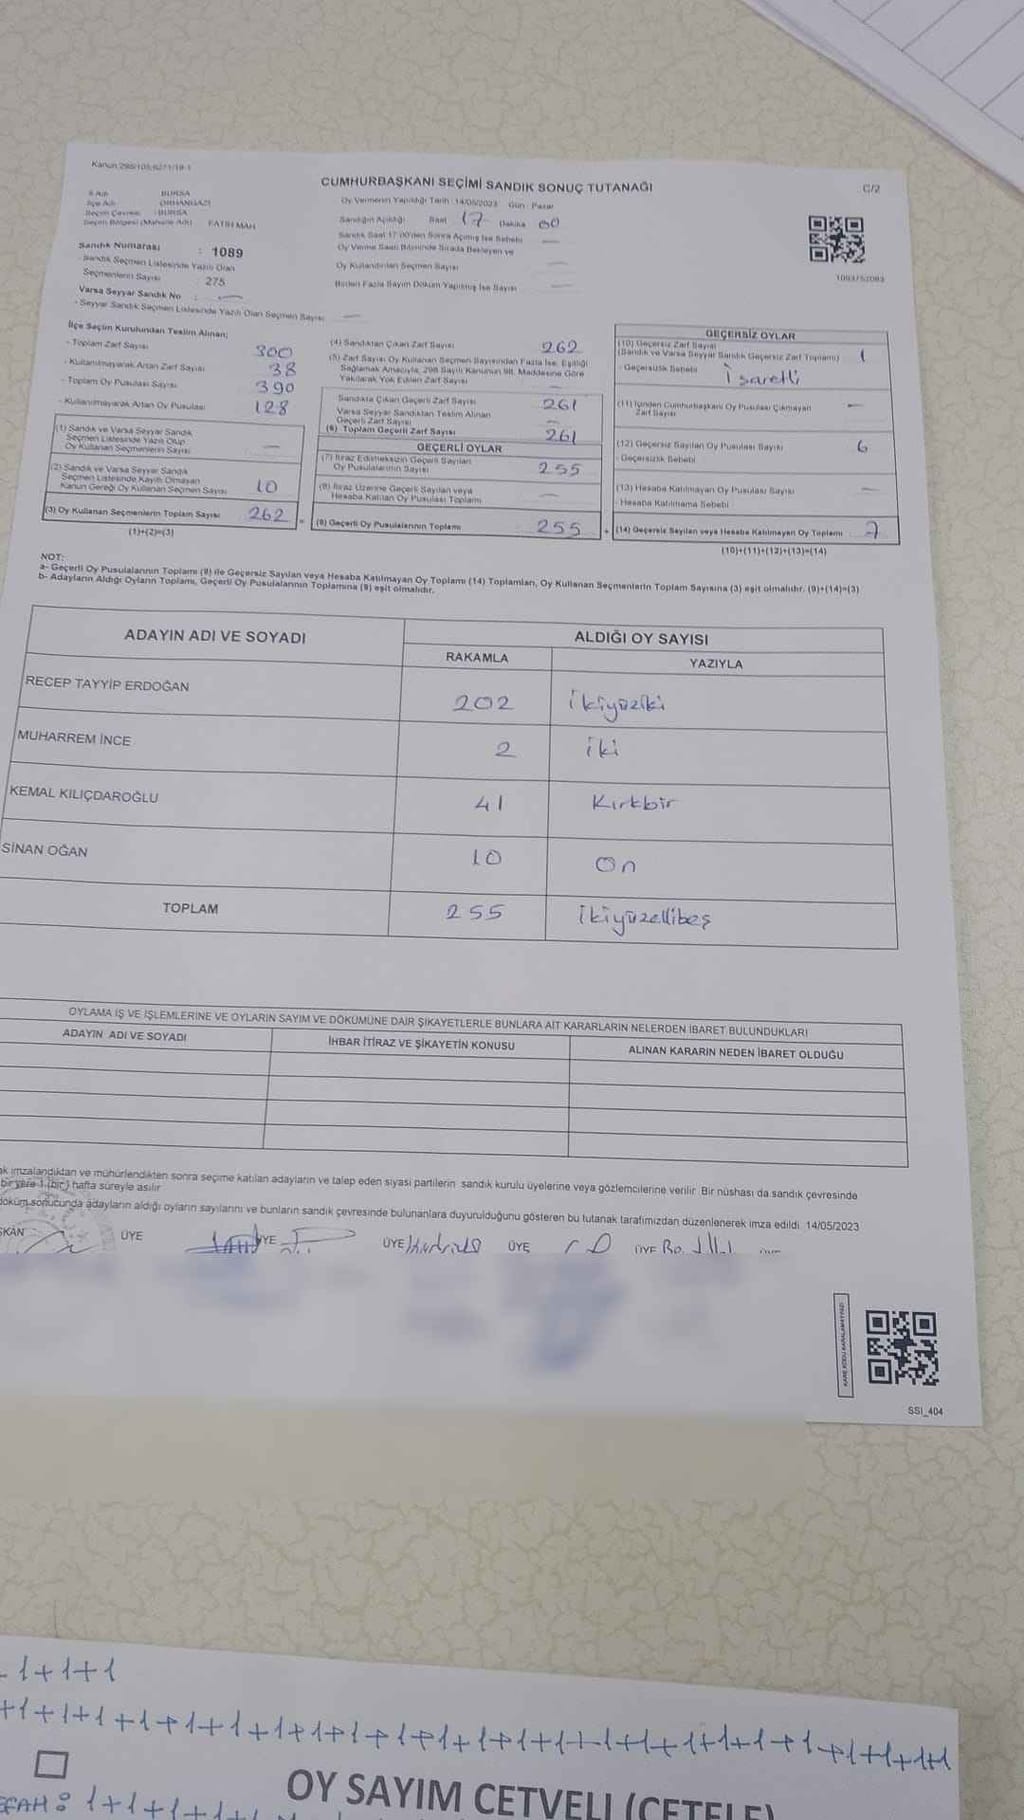 Kanun:298/105,6271/19-1
CUMHURBAŞKANI SEÇİMİ SANDIK SONUÇ TUTANAĞI
C/2
İl Adı : BURSA
İlçe Adı : ORHANGAZİ
Seçim Çevresi : BURSA
Seçim Bölgesi (Mahalle Adı) : FATİH MAH
Sandık Numarası : 1089
- Sandık Seçmen Listesinde Yazılı Olan
Seçmenlerin Sayısı : 275
Varsa Seyyar Sandık No : —
- Seyyar Sandık Seçmen Listesinde Yazılı Olan Seçmen Sayısı —
Oy Vermenin Yapıldığı Tarih : 14/05/2023 Gün : Pazar
Sandığın Açıldığı Saat 17 Dakika 00
Sandık Saat 17:00'den Sonra Açılmış İse Sebebi —
Oy Verme Saati Bitiminde Sırada Bekleyen ve
Oy Kullandırılan Seçmen Sayısı —
Birden Fazla Sayım Döküm Yapılmış İse Sayısı —
1093752083
İlçe Seçim Kurulundan Teslim Alınan;
- Toplam Zarf Sayısı 300
- Kullanılmayarak Artan Zarf Sayısı 38
- Toplam Oy Pusulası Sayısı 390
- Kullanılmayarak Artan Oy Pusulası 128
(1) Sandık ve Varsa Seyyar Sandık
Seçmen Listesinde Yazılı Olup
Oy Kullanan Seçmenlerin Sayısı —
(2) Sandık ve Varsa Seyyar Sandık
Seçmen Listesinde Kayıtlı Olmayan
Kanun Gereği Oy Kullanan Seçmen Sayısı 10
(3) Oy Kullanan Seçmenlerin Toplam Sayısı 262
(1)+(2)=(3)
(4) Sandıktan Çıkan Zarf Sayısı 262
(5) Zarf Sayısı Oy Kullanan Seçmen Sayısından Fazla İse, Eşitliği
Sağlamak Amacıyla, 298 Sayılı Kanunun 98. Maddesine Göre
Yakılarak Yok Edilen Zarf Sayısı —
Sandıkta Çıkan Geçerli Zarf Sayısı 261
Varsa Seyyar Sandıktan Teslim Alınan
Geçerli Zarf Sayısı —
(6) Toplam Geçerli Zarf Sayısı 261
GEÇERLİ OYLAR
(7) İtiraz Edilmeksizin Geçerli Sayılan
Oy Pusulalarının Sayısı 255
(8) İtiraz Üzerine Geçerli Sayılan veya
Hesaba Katılan Oy Pusulası Toplamı —
(9) Geçerli Oy Pusulalarının Toplamı 255
GEÇERSİZ OYLAR
(10) Geçersiz Zarf Sayısı
(Sandık ve Varsa Seyyar Sandık Geçersiz Zarf Toplamı) 1
- Geçersizlik Sebebi İşaretli
(11) İçinden Cumhurbaşkanı Oy Pusulası Çıkmayan
Zarf Sayısı —
(12) Geçersiz Sayılan Oy Pusulası Sayısı 6
- Geçersizlik Sebebi
(13) Hesaba Katılmayan Oy Pusulası Sayısı —
- Hesaba Katılmama Sebebi
(14) Geçersiz Sayılan veya Hesaba Katılmayan Oy Toplamı 7
(10)+(11)+(12)+(13)=(14)
NOT:
a- Geçerli Oy Pusulalarının Toplamı (9) ile Geçersiz Sayılan veya Hesaba Katılmayan Oy Toplamı (14) Toplamları, Oy Kullanan Seçmenlerin Toplam Sayısına (3) eşit olmalıdır. (9)+(14)=(3)
b- Adayların Aldığı Oyların Toplamı, Geçerli Oy Pusulalarının Toplamına (9) eşit olmalıdır.
ADAYIN ADI VE SOYADI
ALDIĞI OY SAYISI
RAKAMLA YAZIYLA
RECEP TAYYİP ERDOĞAN 202 ikiyüziki
MUHARREM İNCE 2 iki
KEMAL KILIÇDAROĞLU 41 Kırkbir
SİNAN OĞAN 10 On
TOPLAM 255 ikiyüzellibeş
OYLAMA İŞ VE İŞLEMLERİNE VE OYLARIN SAYIM VE DÖKÜMÜNE DAİR ŞİKAYETLERLE BUNLARA AİT KARARLARIN NELERDEN İBARET BULUNDUKLARI
ADAYIN ADI VE SOYADI İHBAR İTİRAZ VE ŞİKAYETİN KONUSU ALINAN KARARIN NEDEN İBARET OLDUĞU
ak imzalandıktan ve mühürlendikten sonra seçime katılan adayların ve talep eden siyasi partilerin sandık kurulu üyelerine veya gözlemcilerine verilir. Bir nüshası da sandık çevresinde
bir yere 1 (bir) hafta süreyle asılır
döküm sonucunda adayların aldığı oyların sayılarını ve bunların sandık çevresinde bulunanlara duyurulduğunu gösteren bu tutanak tarafımızdan düzenlenerek imza edildi. 14/05/2023
ŞKAN ÜYE ÜYE ÜYE ÜYE ÜYE
KARE KODU KARALAMAYINIZ
SSI_404
1+1+1
+1+1+1+1+1+1+1+1+1+1+1+1+1+1+1+1+1+1+1+1+1+1+1+1+1
OY SAYIM CETVELİ (ÇETELE)